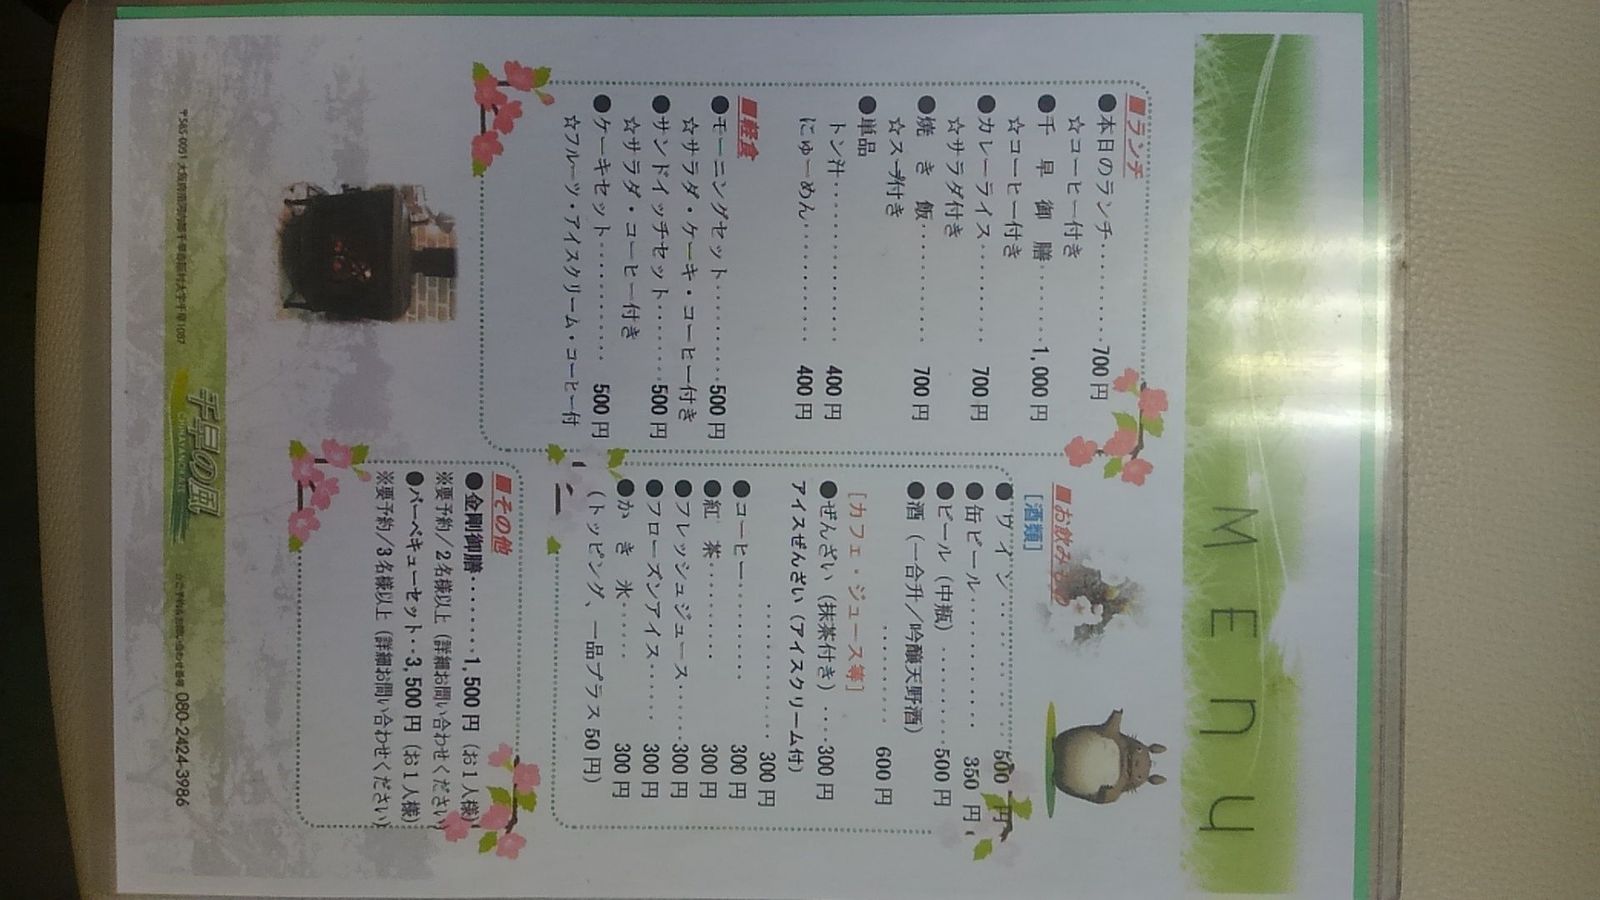 MEnu
■ランチ
●本日のランチ・・・・・・・・・700円
☆コーヒー付き
●千早御膳・・・・・・・1,000円
☆コーヒー付き
●カレーライス・・・・・・・・・700円
☆サラダ付き
●焼き飯・・・・・・・・・・・700円
☆スープ付き
●単品
トン汁・・・・・・・・・・・・・400円
にゅーめん・・・・・・・・・・・400円
■軽食
●モーニングセット・・・・・・・・500円
☆サラダ・ケーキ・コーヒー付き
●サンドイッチセット・・・・・・・500円
☆サラダ・コーヒー付き
●ケーキセット・・・・・・・・・・500円
☆フルーツ・アイスクリーム・コーヒー付
■お飲みもの
[酒類]
●ワイン・・・・・・・・・・500円
●缶ビール・・・・・・・・・・・350円
●ビール（中瓶）・・・・・・・・・500円
●酒（一合升／吟醸天野酒）
・・・・・・・・・・600円
[カフェ・ジュース等]
●ぜんざい（抹茶付き）・・・・300円
アイスぜんざい（アイスクリーム付）
・・・・・・・・・・・・300円
●コーヒー・・・・・・・・300円
●紅茶・・・・・・・・・300円
●フレッシュジュース・・・・・300円
●フローズンアイス・・・・・300円
●かき氷・・・・・300円
（トッピング、一品プラス50円）
■その他
●金剛御膳・・・・・・・1,500円（お1人様）
※要予約／2名様以上（詳細お問い合わせください）
●バーベキューセット・・3,500円（お1人様）
※要予約／3名様以上（詳細お問い合わせください）
千早の風
080-2424-3986